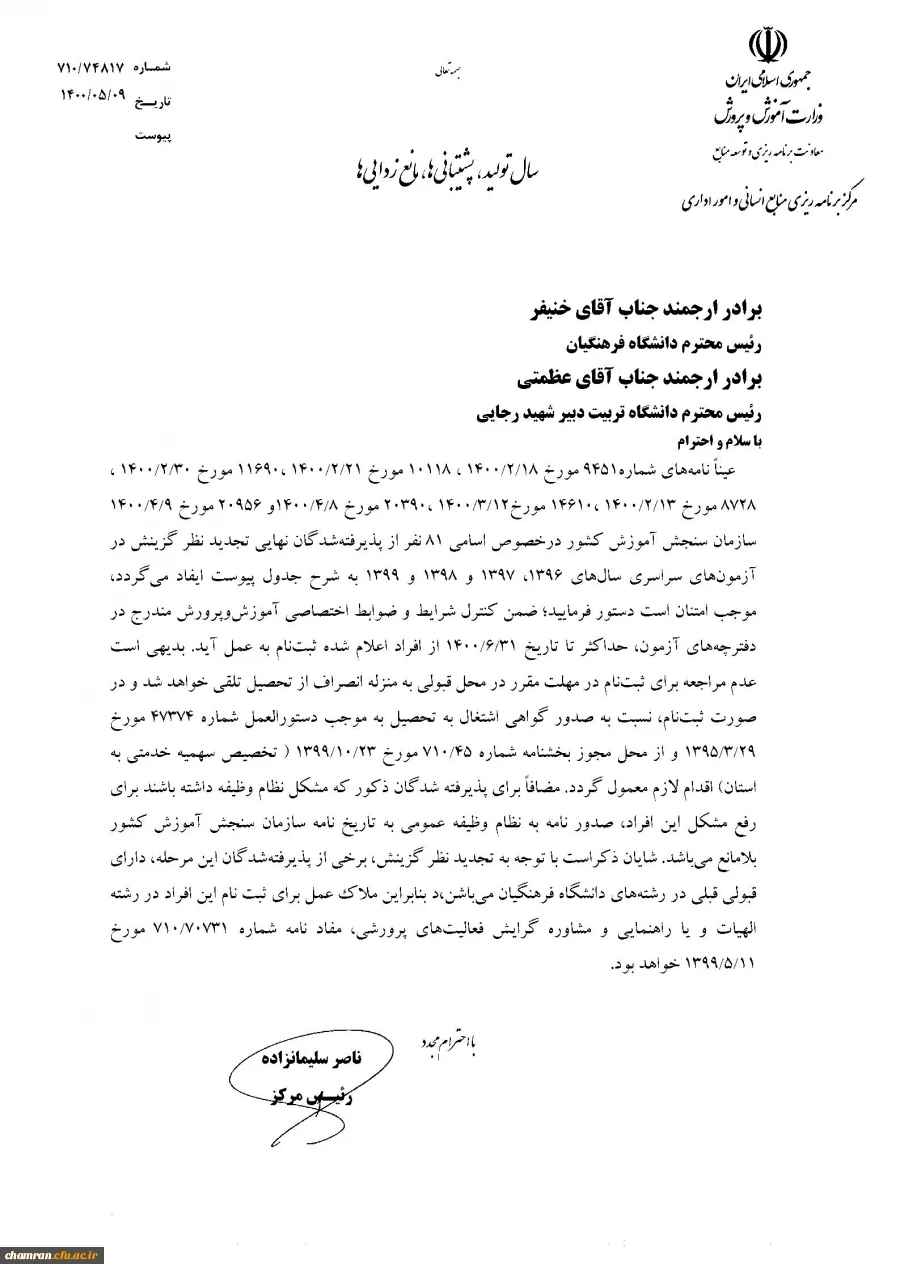 بسمه تعالی
جمهوری اسلامی ایران
وزارت آموزش و پرورش
معاونت برنامه ریزی و توسعه منابع
مرکز برنامه ریزی منابع انسانی و امور اداری
شماره ۷۱۰/۷۴۸۱۷
تاریخ ۱۴۰۰/۰۵/۰۹
پیوست
سال تولید، پشتیبانی‌ها، مانع زدایی‌ها
برادر ارجمند جناب آقای خنیفر
رئیس محترم دانشگاه فرهنگیان
برادر ارجمند جناب آقای عظمتی
رئیس محترم دانشگاه تربیت دبیر شهید رجایی
با سلام و احترام
عیناً نامه‌های شماره۹۴۵۱ مورخ ۱۴۰۰/۲/۱۸ ، ۱۰۱۱۸ مورخ ۱۴۰۰/۲/۲۱ ،۱۱۶۹۰ مورخ ۱۴۰۰/۲/۳۰ ،
۸۷۲۸ مورخ ۱۴۰۰/۲/۱۳ ،۱۴۶۱۰ مورخ۱۴۰۰/۳/۱۲ ،۲۰۳۹۰ مورخ ۱۴۰۰/۴/۸و ۲۰۹۵۶ مورخ ۱۴۰۰/۴/۹
سازمان سنجش آموزش کشور درخصوص اسامی ۸۱ نفر از پذیرفته‌شدگان نهایی تجدید نظر گزینش در
آزمون‌های سراسری سال‌های ۱۳۹۶، ۱۳۹۷ و ۱۳۹۸ و ۱۳۹۹ به شرح جدول پیوست ایفاد می‌گردد،
موجب امتنان است دستور فرمایید؛ ضمن کنترل شرایط و ضوابط اختصاصی آموزش‌وپرورش مندرج در
دفترچه‌های آزمون، حداکثر تا تاریخ ۱۴۰۰/۶/۳۱ از افراد اعلام شده ثبت‌نام به عمل آید. بدیهی است
عدم مراجعه برای ثبت‌نام در مهلت مقرر در محل قبولی به منزله انصراف از تحصیل تلقی خواهد شد و در
صورت ثبت‌نام، نسبت به صدور گواهی اشتغال به تحصیل به موجب دستورالعمل شماره ۴۷۳۷۴ مورخ
۱۳۹۵/۳/۲۹ و از محل مجوز بخشنامه شماره ۷۱۰/۴۵ مورخ ۱۳۹۹/۱۰/۲۳ ( تخصیص سهمیه خدمتی به
استان) اقدام لازم معمول گردد. مضافاً برای پذیرفته شدگان ذکور که مشکل نظام وظیفه داشته باشند برای
رفع مشکل این افراد، صدور نامه به نظام وظیفه عمومی به تاریخ نامه سازمان سنجش آموزش کشور
بلامانع می‌باشد. شایان ذکراست با توجه به تجدید نظر گزینش، برخی از پذیرفته‌شدگان این مرحله، دارای
قبولی قبلی در رشته‌های دانشگاه فرهنگیان می‌باشن،د بنابراین ملاک عمل برای ثبت نام این افراد در رشته
الهیات و یا راهنمایی و مشاوره گرایش فعالیت‌های پرورشی، مفاد نامه شماره ۷۱۰/۷۰۷۳۱ مورخ
۱۳۹۹/۵/۱۱ خواهد بود.
با احترام مجدد
ناصر سلیمانزاده
رئیس مرکز
chamran.cfu.ac.ir